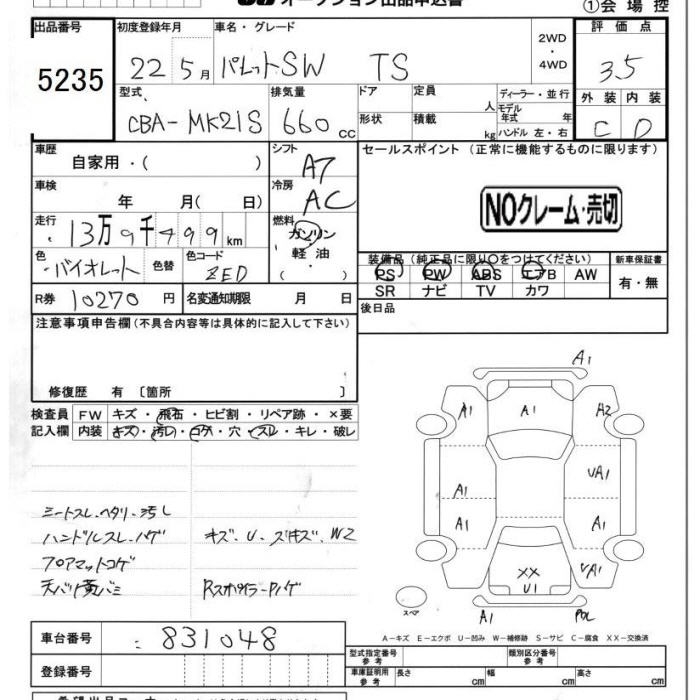 オークション出品申込書
①会場控
出品番号
5235
初度登録年月 車名・グレード 評価点
22 5月 パレットSW TS
2WD
・
4WD
3.5
型式 排気量 ドア 定員 ディーラー・並行
CBA-MK21S 660cc 人 モデル年式 年
形状 積載 kg ハンドル 左・右
外装 内装
C D
車歴 自家用・( )
シフト AT
車検 年 月( 日)
冷房 AC
走行 13万9千499km
燃料 ガソリン・軽油・( )
色 バイオレット 色替 色コード ZED
R券 10270円 名変通知期限 月 日
セールスポイント(正常に機能するものに限ります)
NOクレーム・売切
装備品(純正品に限り○をつけてください) 新車保証書
PS PW ABS エアB AW 有・無
SR ナビ TV カワ
後日品
注意事項申告欄(不具合内容等は具体的に記入して下さい)
修復歴 有 〔箇所 〕
検査員 FW キズ・飛石・ヒビ割・リペア跡・×要
記入欄 内装 キズ・汚レ・コゲ・穴・スレ・キレ・破レ
シートスレ・ヘタリ・汚レ
ハンドルスレ・ハゲ キズ・U・ズキズ、W2
フロアマットコゲ
天バリ黄バミ Rスポイラーハゲ
A1
A1 A1 A2
A1 UA1
A1 A1
XX
U1
UA1
スペア
A1
A-キズ E-エクボ U-凹み W-補修跡 S-サビ C-腐食 XX-交換済
車台番号 831048
登録番号
型式指定番号 参考 類別区分番号 参考
車庫証明用 参考 長さ cm 幅 cm 高さ cm
希望出品コーナー